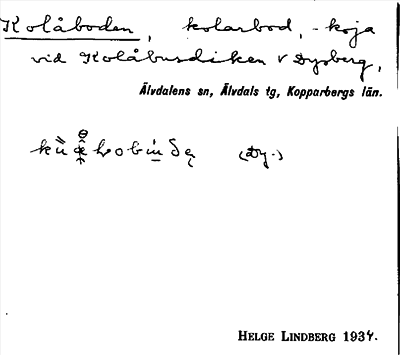 Kolåboden, kolarbod, -koja
vid Kolåbusdiken v Dysberg,
Älvdalens sn, Älvdals tg, Kopparbergs län.
(Dy.)
HELGE LINDBERG 1934.